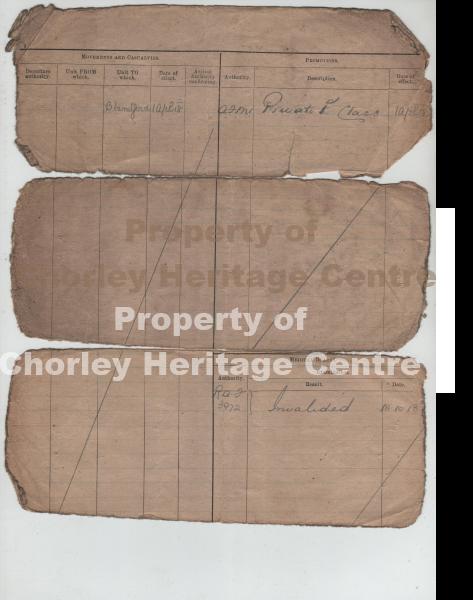 MOVEMENTS AND CASUALTIES. PROMOTIONS.
Departure authority. Unit FROM which. Unit TO which. Date of effect. Arrival Authority confirming. Authority. Description. Date of effect.
Blandford 1 Apl 18 Private 1st Class 1 Apl 18
Property of
Chorley Heritage Centre
Property of
Chorley Heritage Centre
Authority. Result. Date.
3972 Invalided 18.10.18